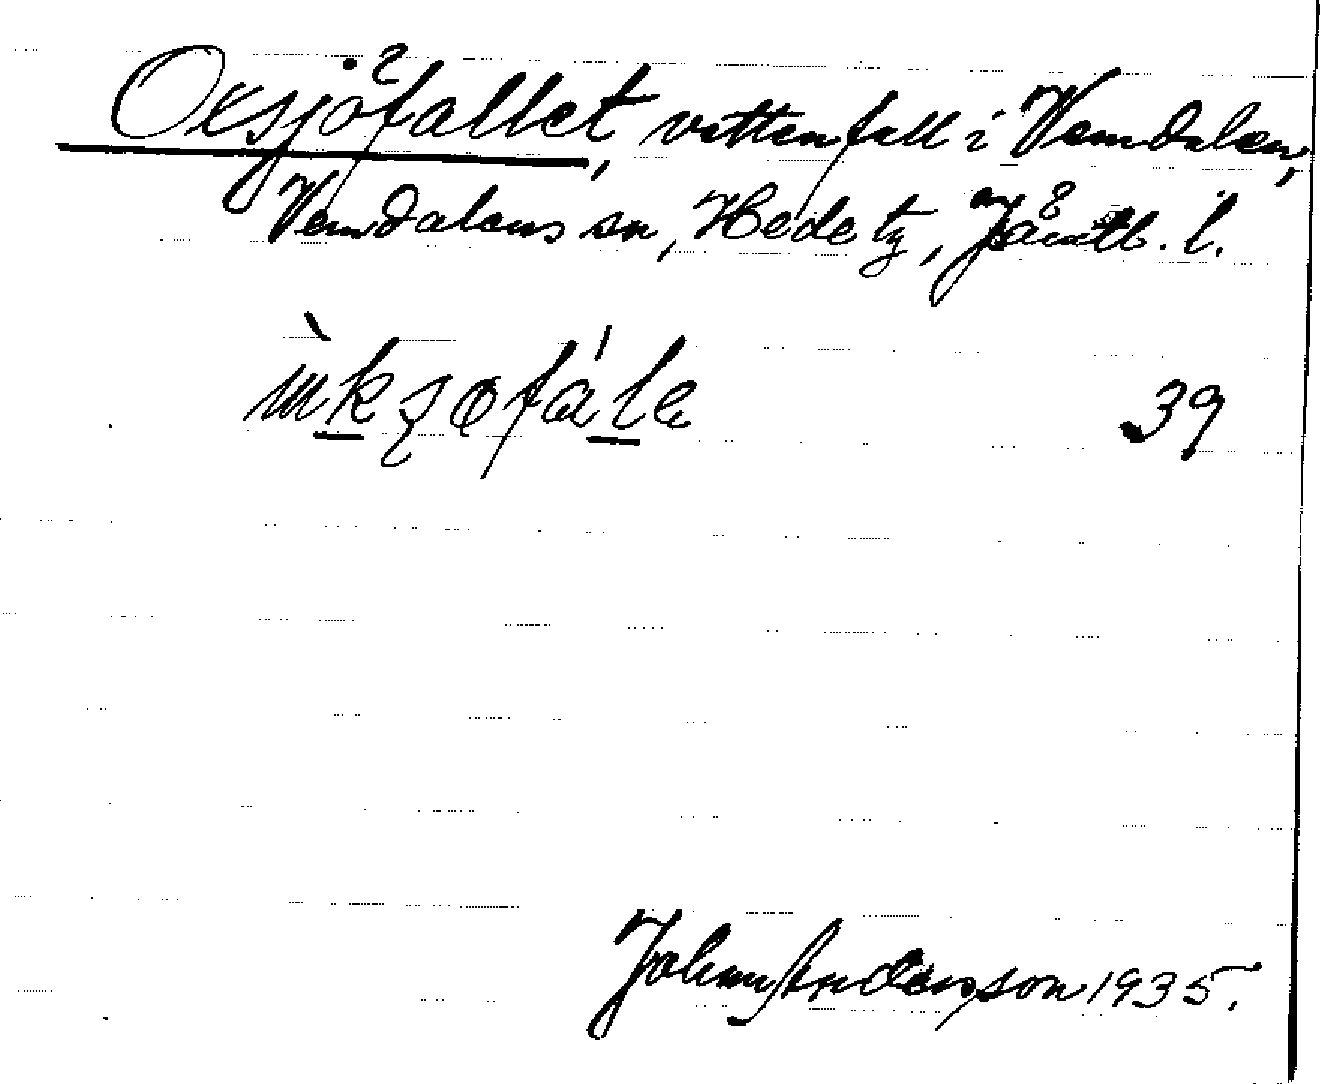 Oxsjöfallet, vattenfall i Vemdalen,
Vemdalens sn, Hede tg, Jämtl. l.
39
Johnny Andersson 1935.